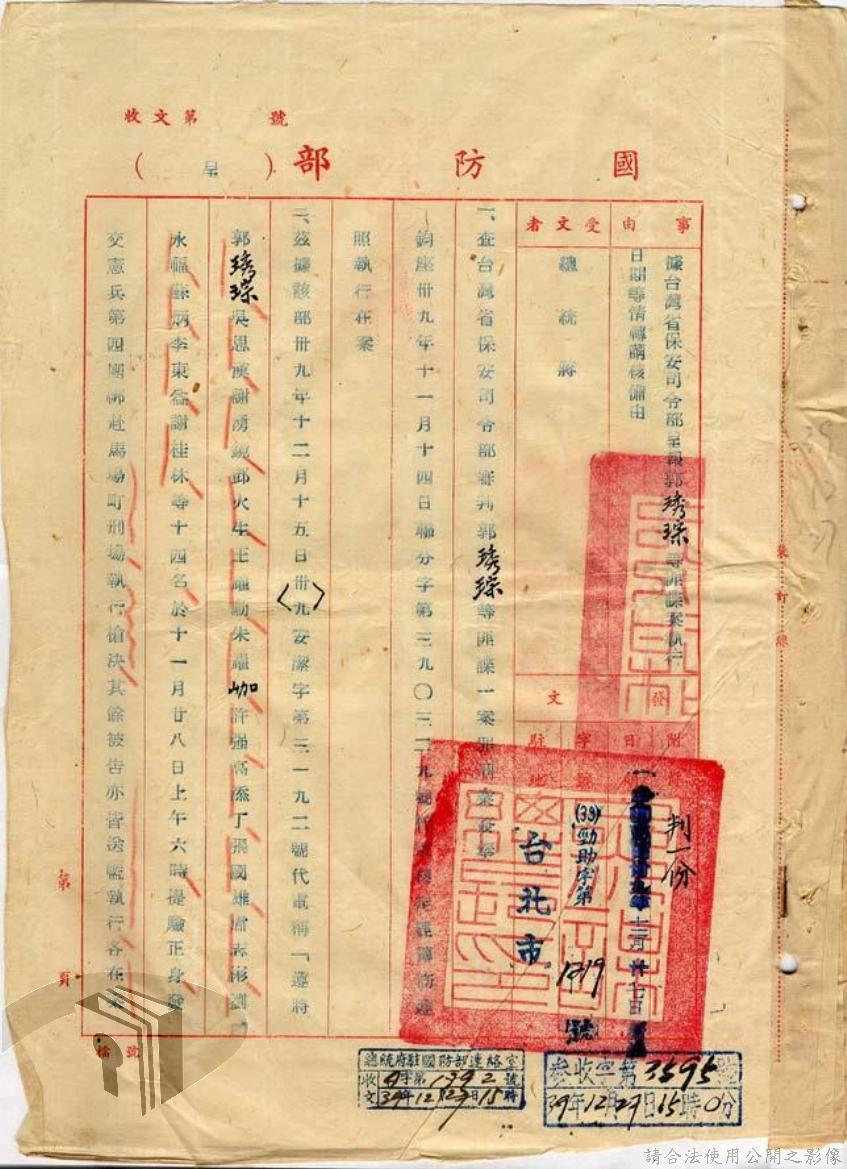 收文第 號
國防部(呈)
事由
受文者
據台灣省保安司令部呈報郭琇琮等匪諜案執行
日期等情轉請核備由
總統蔣
發文
附件
日期
字號
駐地
判一份
十二月廿七日
(39)勁助字第1719號
台北市
一、查台灣省保安司令部審判郭琇琮等匪諜一案
鈞座卅九年十一月十四日聯分字第三九〇三二九號
照執行在案
二、茲據該部卅九年十二月十五日〈卅九〉安潔字第三一九二號代電稱「遵將
郭琇琮吳思漢謝湧鏡鄧火生王耀勳朱耀珈許强高添丁張國雄盧志彬劉
永福蘇炳李東益謝桂林等十四名於十一月廿八日上午六時提驗正身發
交憲兵第四團綁赴馬場町刑場執行槍決其餘被告亦皆送監執行各在案
裝訂線
第 頁
檔號
總統府駐國防部連絡室
收文 字第1392號
39年12月29日15時
參收字第3595號
39年12月29日15時0分
請合法使用公開之影像